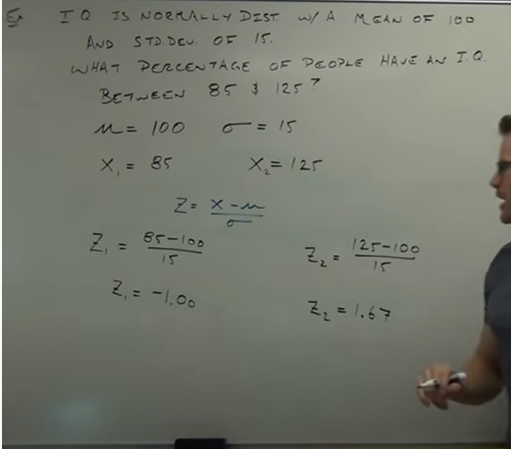 Ex I Q IS NORMALLY DIST W/ A MEAN OF 100
AND STD.DEV. OF 15.
WHAT PERCENTAGE OF PEOPLE HAVE AN I.Q.
BETWEEN 85 & 125?
μ = 100 σ = 15
X₁ = 85 X₂ = 125
Z = (X - μ)/σ
Z₁ = (85-100)/15 Z₂ = (125-100)/15
Z₁ = -1.00 Z₂ = 1.67